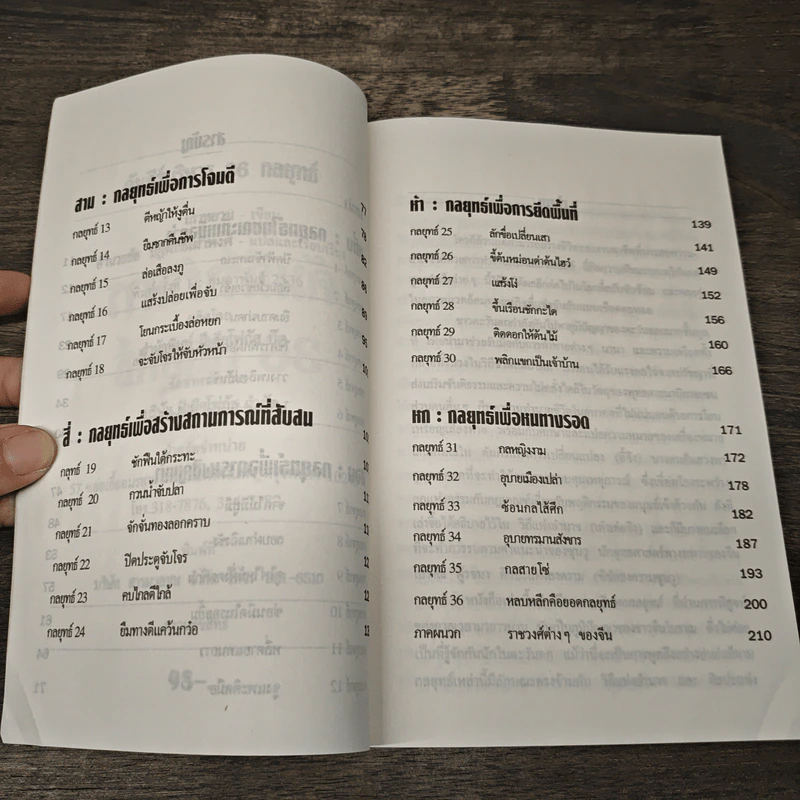 สาม : กลยุทธ์เพื่อการโจมตี 77
กลยุทธ์ 13 ตีหญ้าให้งูตื่น 78
กลยุทธ์ 14 ยืมซากคืนชีพ 82
กลยุทธ์ 15 ล่อเสือลงภู
กลยุทธ์ 16 แสร้งปล่อยเพื่อจับ 89
กลยุทธ์ 17 โยนกระเบื้องล่อหยก
กลยุทธ์ 18 จะจับโจรให้จับหัวหน้า
สี่ : กลยุทธ์เพื่อสร้างสถานการณ์ที่สับสน
กลุทธ์ 19 ชักฟืนใต้กระทะ
กลยุทธ์ 20 กวนน้ำจับปลา
กลยุทธ์ 21 จักจั่นทองลอกคราบ
กลยุทธ์ 22 ปิดประตูจับโจร
กลยุทธ์ 23 คบไกลตีใกล้
กลยุทธ์ 24 ยืมทางตีแคว้นกว๋อ
ห้า : กลยุทธ์เพื่อการยึดพื้นที่ 139
กลยุทธ์ 25 ลักขื่อเปลี่ยนเสา 141
กลยุทธ์ 26 ชี้ต้นหม่อนด่าต้นไฮว๋ 149
กลยุทธ์ 27 แสร้งโง่ 152
กลยุทธ์ 28 ขึ้นเรือนชักกะได 156
กลยุทธ์ 29 ติดดอกให้ต้นไม้ 160
กลยุทธ์ 30 พลิกแขกเป็นเจ้าบ้าน 166
หก : กลยุทธ์เพื่อหนทางรอด 171
กลยุทธ์ 31 กลหญิงงาม 172
กลยุทธ์ 32 อุบายเมืองเปล่า 178
กลยุทธ์ 33 ซ้อนกลไส้ศึก 182
กลยุทธ์ 34 อุบายทรมานสังขาร 187
กลยุทธ์ 35 กลสายโซ่ 193
กลยุทธ์ 36 หลบหลีกคือยอดกลยุทธ์ 200
ภาคผนวก ราชวงศ์ต่างๆ ของจีน 210